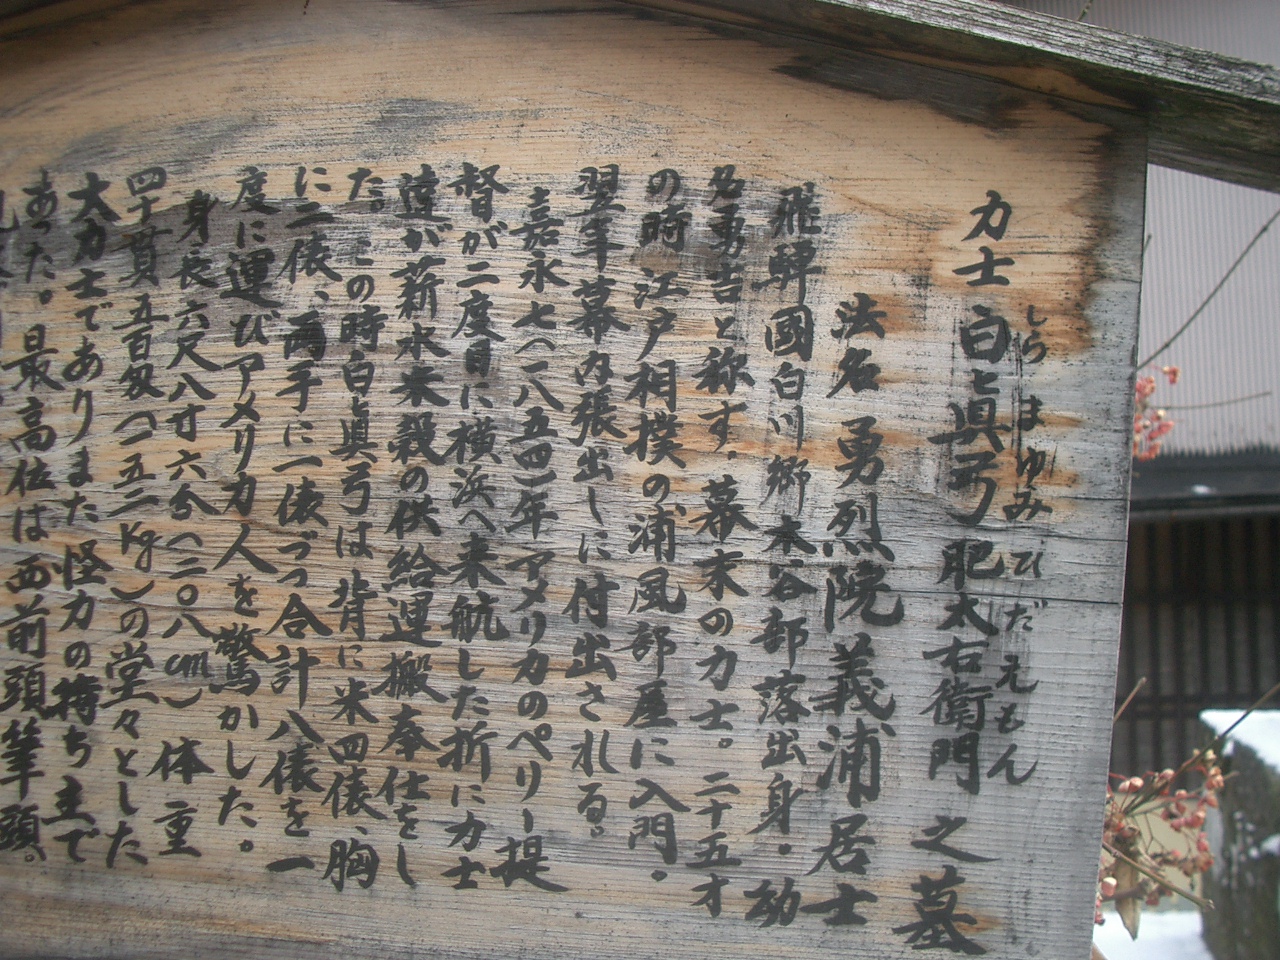 力士 白真弓 肥太右衛門 之墓
しらまゆみ ひだえもん
法名 勇烈院義浦居士
飛騨國白川郷木谷部落出身・幼
名勇吉と称す.幕末の力士。二十五才
の時江戸相撲の浦風部屋に入門.
翌年幕内張出しに付出される。
嘉永七(一八五四)年アメリカのペリー提
督が二度目に横浜へ来航した折に力士
達が薪水米穀の供給運搬奉仕をし
た。この時白真弓は背に米四俵、胸
に二俵、両手に一俵づつ合計八俵を一
度に運びアメリカ人を驚かした。
身長六尺八寸六分(二〇八cm)体重
四十貫五百匁(一五二Kg)の堂々とした
大力士でありまた怪力の持ち主で
あった。最高位は西前頭筆頭。